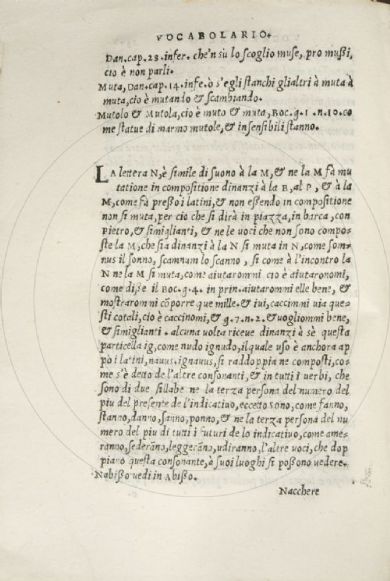 VOCABOLARIO.
Dan. cap. 23. infer. che'n su lo scoglio muse, pro mußi,
cio è non parli.
Muta, Dan. cap. 14. infe. ò s'egli stanchi gli altri à muta à
muta, cio è mutando & scambiando.
Mutolo & Mutola, cio è muto & muta, Boc. g. 1. n. 10. co
me statue di marmo mutole, & insensibili stanno.
LA lettera N, è simile di suono à la M, & ne la M fà mu
tatione in compositione dinanzi à la B, al P, & à la
M, come fà preßo i latini, & non essendo in compositione
non si muta, per cio che si dirà in piazza, in barca, con
Pietro, & simiglianti, & ne le voci che non sono compo-
ste la M, che sia dinanzi à la N si muta in N, come som-
nus il sonno, scamnum lo scanno, si come à l'incontro la
N ne la M si muta, come aiutarommi cio è aiutaronomi,
come diße il Boc. g. 4. in prin. aiutarommi elle bene, &
mostrarommi cõ porre que mille. & iui, caccimmi uia que-
sti cotali, cio è caccinomi, & g. 7. n. 2. & uogliommi bene,
& simiglianti. alcuna volta riceve dinanzi à sè questa
particella ig, come nudo ignudo, il quale uso è anchora ap
po i latini, nauus, ignauus, si raddoppia ne composti, co-
me s'è detto de l'altre consonanti, & in tutti i uerbi, che
sono di due sillabe ne la terza persona del numero del
piu del presente de l'indicatiuo, eccetto sono, come fanno,
stanno, danno, sanno, ponno, & ne la terza persona del nu
mero del piu di tutti i futuri de lo indicatiuo, come ame-
ranno, sederanno, leggeranno, udiranno, l'altre voci, che dop
piano questa consonante, à suoi luoghi si poßono vedere.
Nabißo vedi in Abißo.
Nacchere